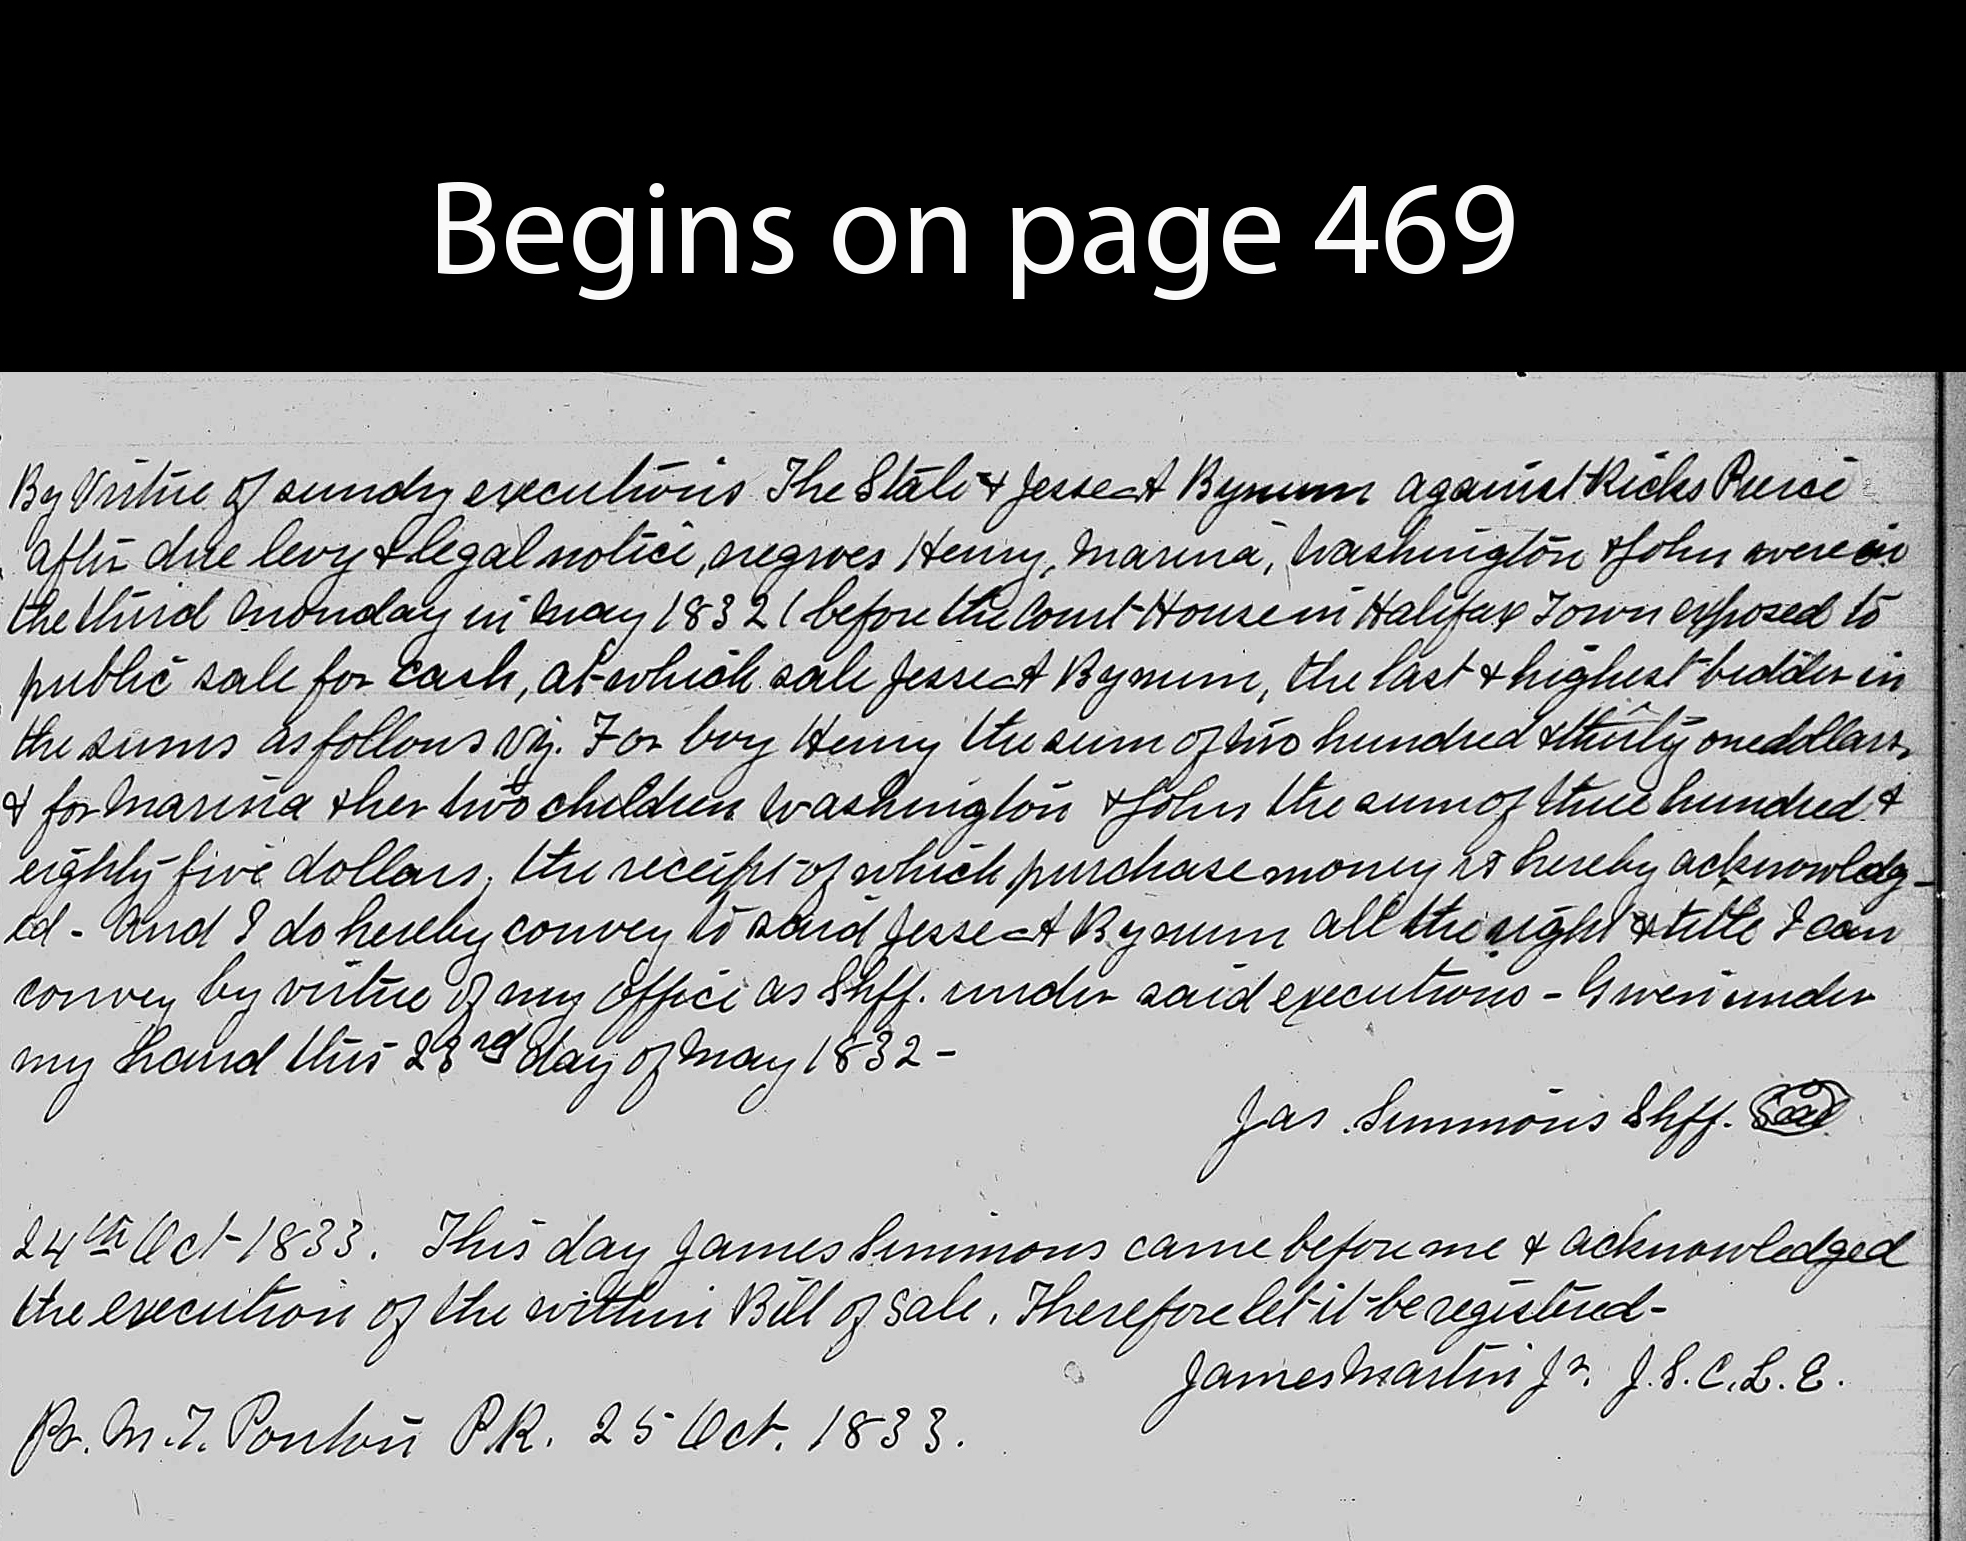 Begins on page 469
By Virtue of sundry executions The State & Jesse A Bynum against Ricks Pierce
after due levy & legal notice, negroes Henry, Marina, Washington & John were on
the third Monday in May 1832 (before the Court House in Halifax Town exposed to
public sale for cash, at which sale Jesse A Bynum, the last & highest bidder in
the sums as follows viz. For boy Henry the sum of two hundred & thirty one dollars,
& for Marina & her two children Washington & John the sum of three hundred &
eighty five dollars, the receipt of which purchase money is hereby acknowledg-
ed - And I do hereby convey to said Jesse A Bynum all the right & title I can
convey by virtue of my office as Shff. under said executions - Given under
my hand this 23rd day of May 1832 -
Jas Simmons Shff. Seal
24th Oct 1833. This day James Simmons came before me & acknowledged
the execution of the within Bill of Sale. Therefore let it be registered -
James Martin Jr. J.S.C.L.E.
Pr. M.T. Ponton P.R. 25 Oct. 1833.